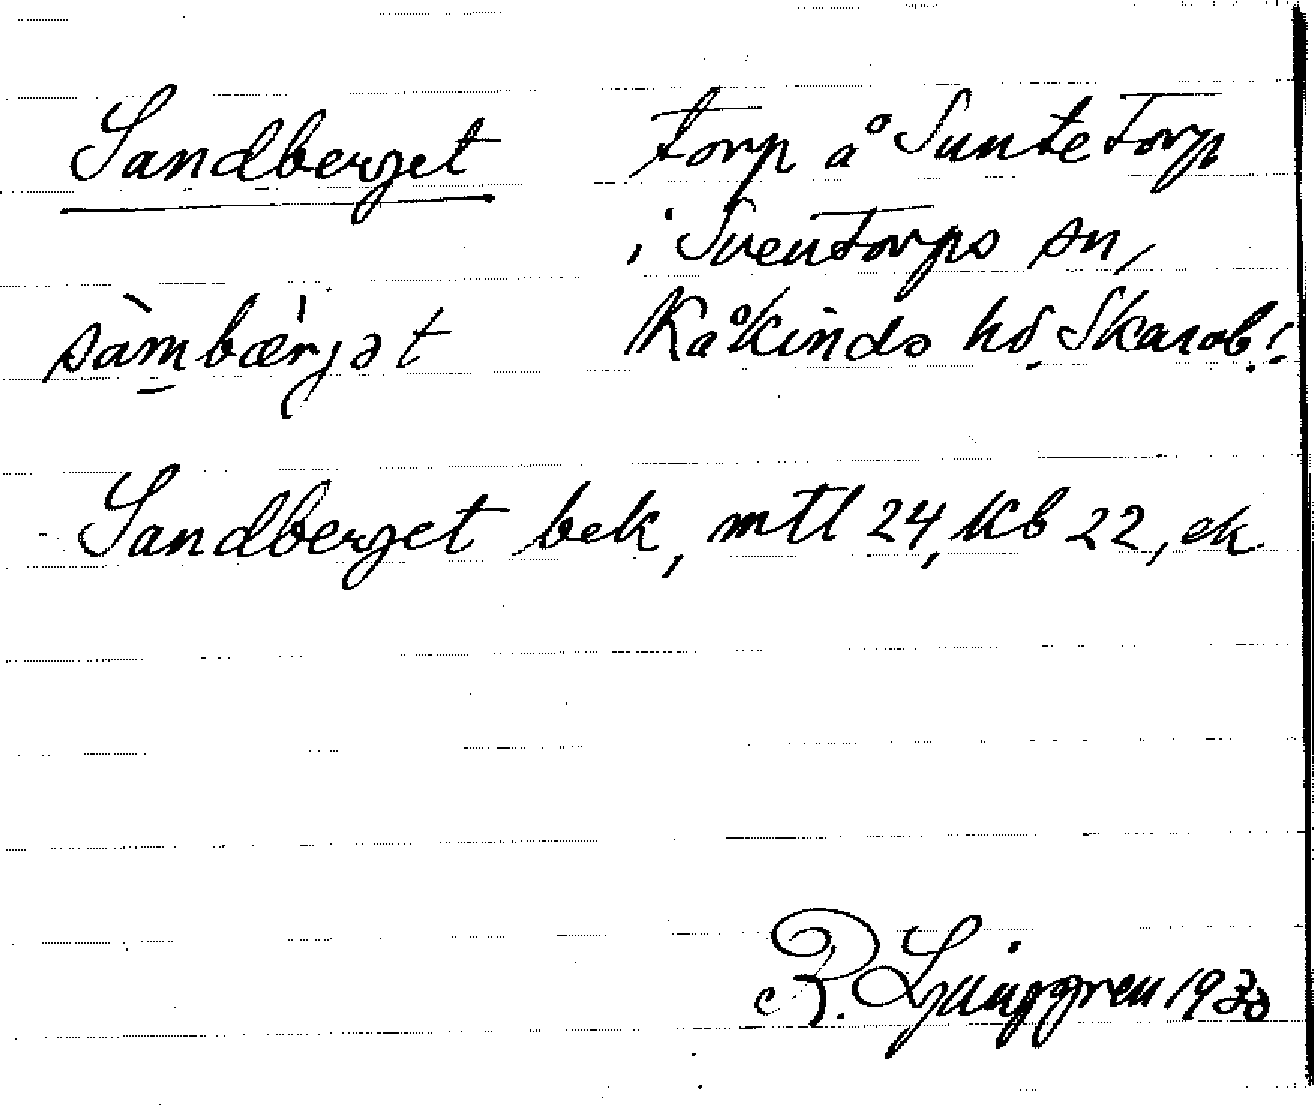 Sandberget torp å Suntetorp
i Sventorps sn,
sàmbæ̀rjət Kåkinds hd. Skarab. l.
Sandberget bek, mtl 24, Kb 22, ek
R. Ljunggren 1930